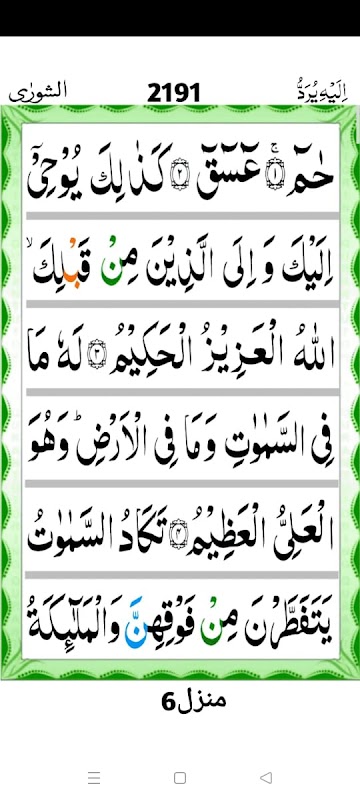 الشورٰی 2191 اِلَیْهِ یُرَدُّ
حٰمٓ ۚ﴿۱﴾ عٓسٓقٓ ﴿۲﴾ كَذٰلِكَ یُوْحِیْۤ
اِلَیْكَ وَ اِلَی الَّذِیْنَ مِنْ قَبْلِكَ ۙ
اللّٰهُ الْعَزِیْزُ الْحَكِیْمُ ﴿۳﴾ لَهٗ مَا
فِی السَّمٰوٰتِ وَ مَا فِی الْاَرْضِ ؕ وَ هُوَ
الْعَلِیُّ الْعَظِیْمُ ﴿۴﴾ تَكَادُ السَّمٰوٰتُ
یَتَفَطَّرْنَ مِنْ فَوْقِهِنَّ وَ الْمَلٰٓىِٕكَةُ
منزل6